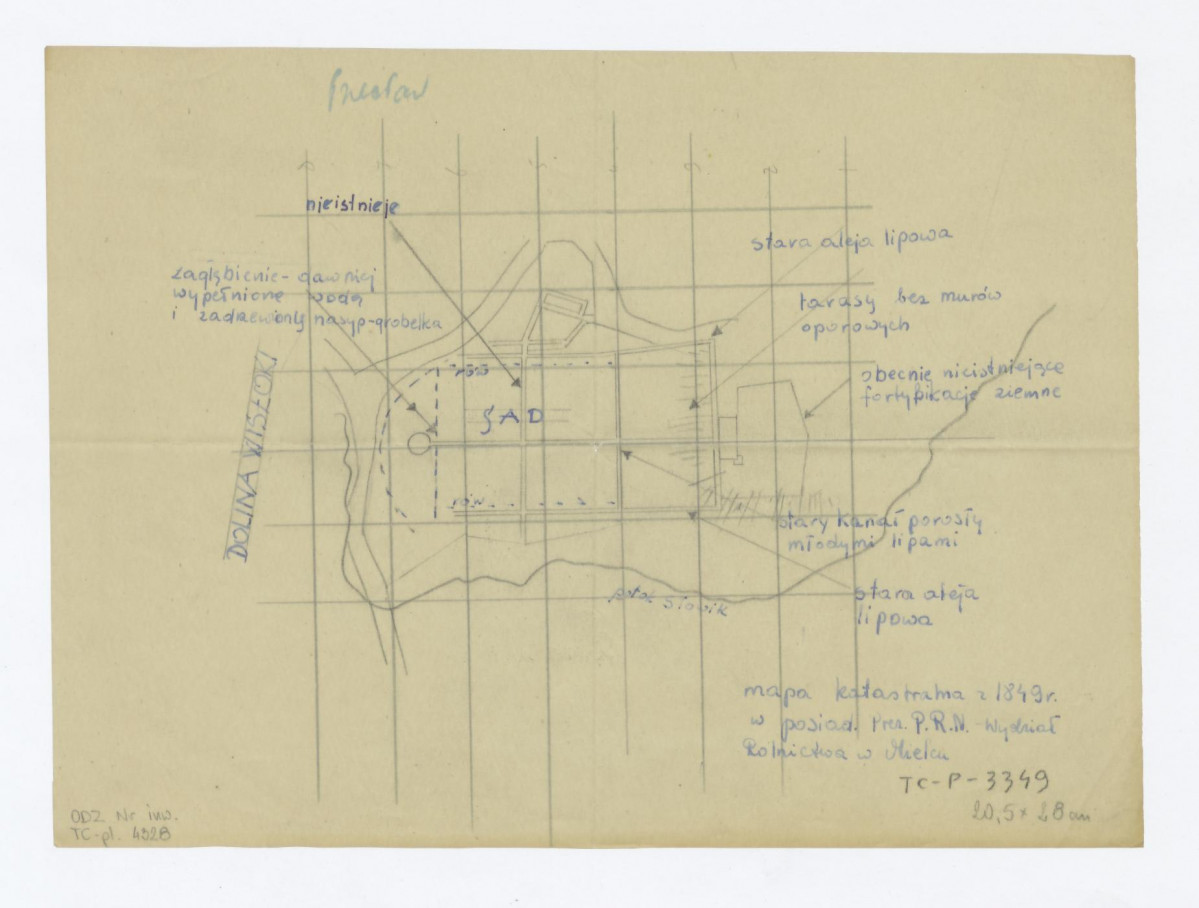 Przecław
nieistnieje
stara aleja lipowa
zagłębienie - dawniej
wypełnione wodą
i zadrzewiony nasyp-grobelka
tarasy bez murów
oporowych
obecnie nieistniejące
fortyfikacje ziemne
DOLINA WISŁOKI
rów
SAD
rów
stary kanał porosły
młodymi lipami
potok Słowik
stara aleja
lipowa
mapa katastralna z 1849r.
w posiad. Prez. P.R.N. - Wydział
Rolnictwa w Mielcu
TC-P-3349
20,5 x 28 cm
ODZ Nr inw.
TC-pl. 4328